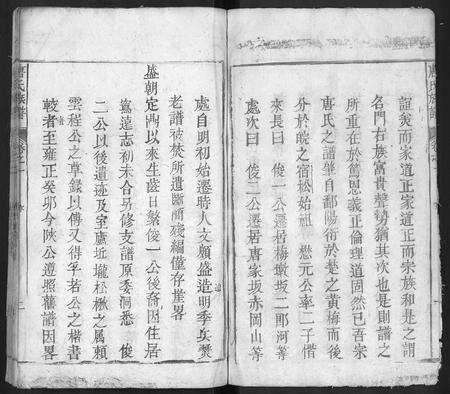 誼美而家道正家道正而宗族和是之謂
名門右族富貴聲勢猶其次也是則譜之
所重在於篤恩義正倫理道固然已吾宗
唐氏之譜肇自鄱陽衍於楚之黃梅而後
分於皖之宿松始祖 懋元公率二子惜
來長曰 俊一公遷居梅墩坂二郎河等
處次曰 俊二公遷居唐家坂赤岡山等
處自明初始遷時人文頗盛造明季兵燹
老譜被焚所遺斷簡殘編僅存崖畧
盛朝定鼎以來生齒日繁俊一公後裔因住居
寫遠志初未合另修支譜原委洞悉 俊
二公以後遺迹及室廬坵壠松楸之屬賴
雲程公之草錄以傳又得孚若公之楷書
較者至雍正癸卯今陝公遵照舊譜因畧
唐氏族譜
卷之一
二